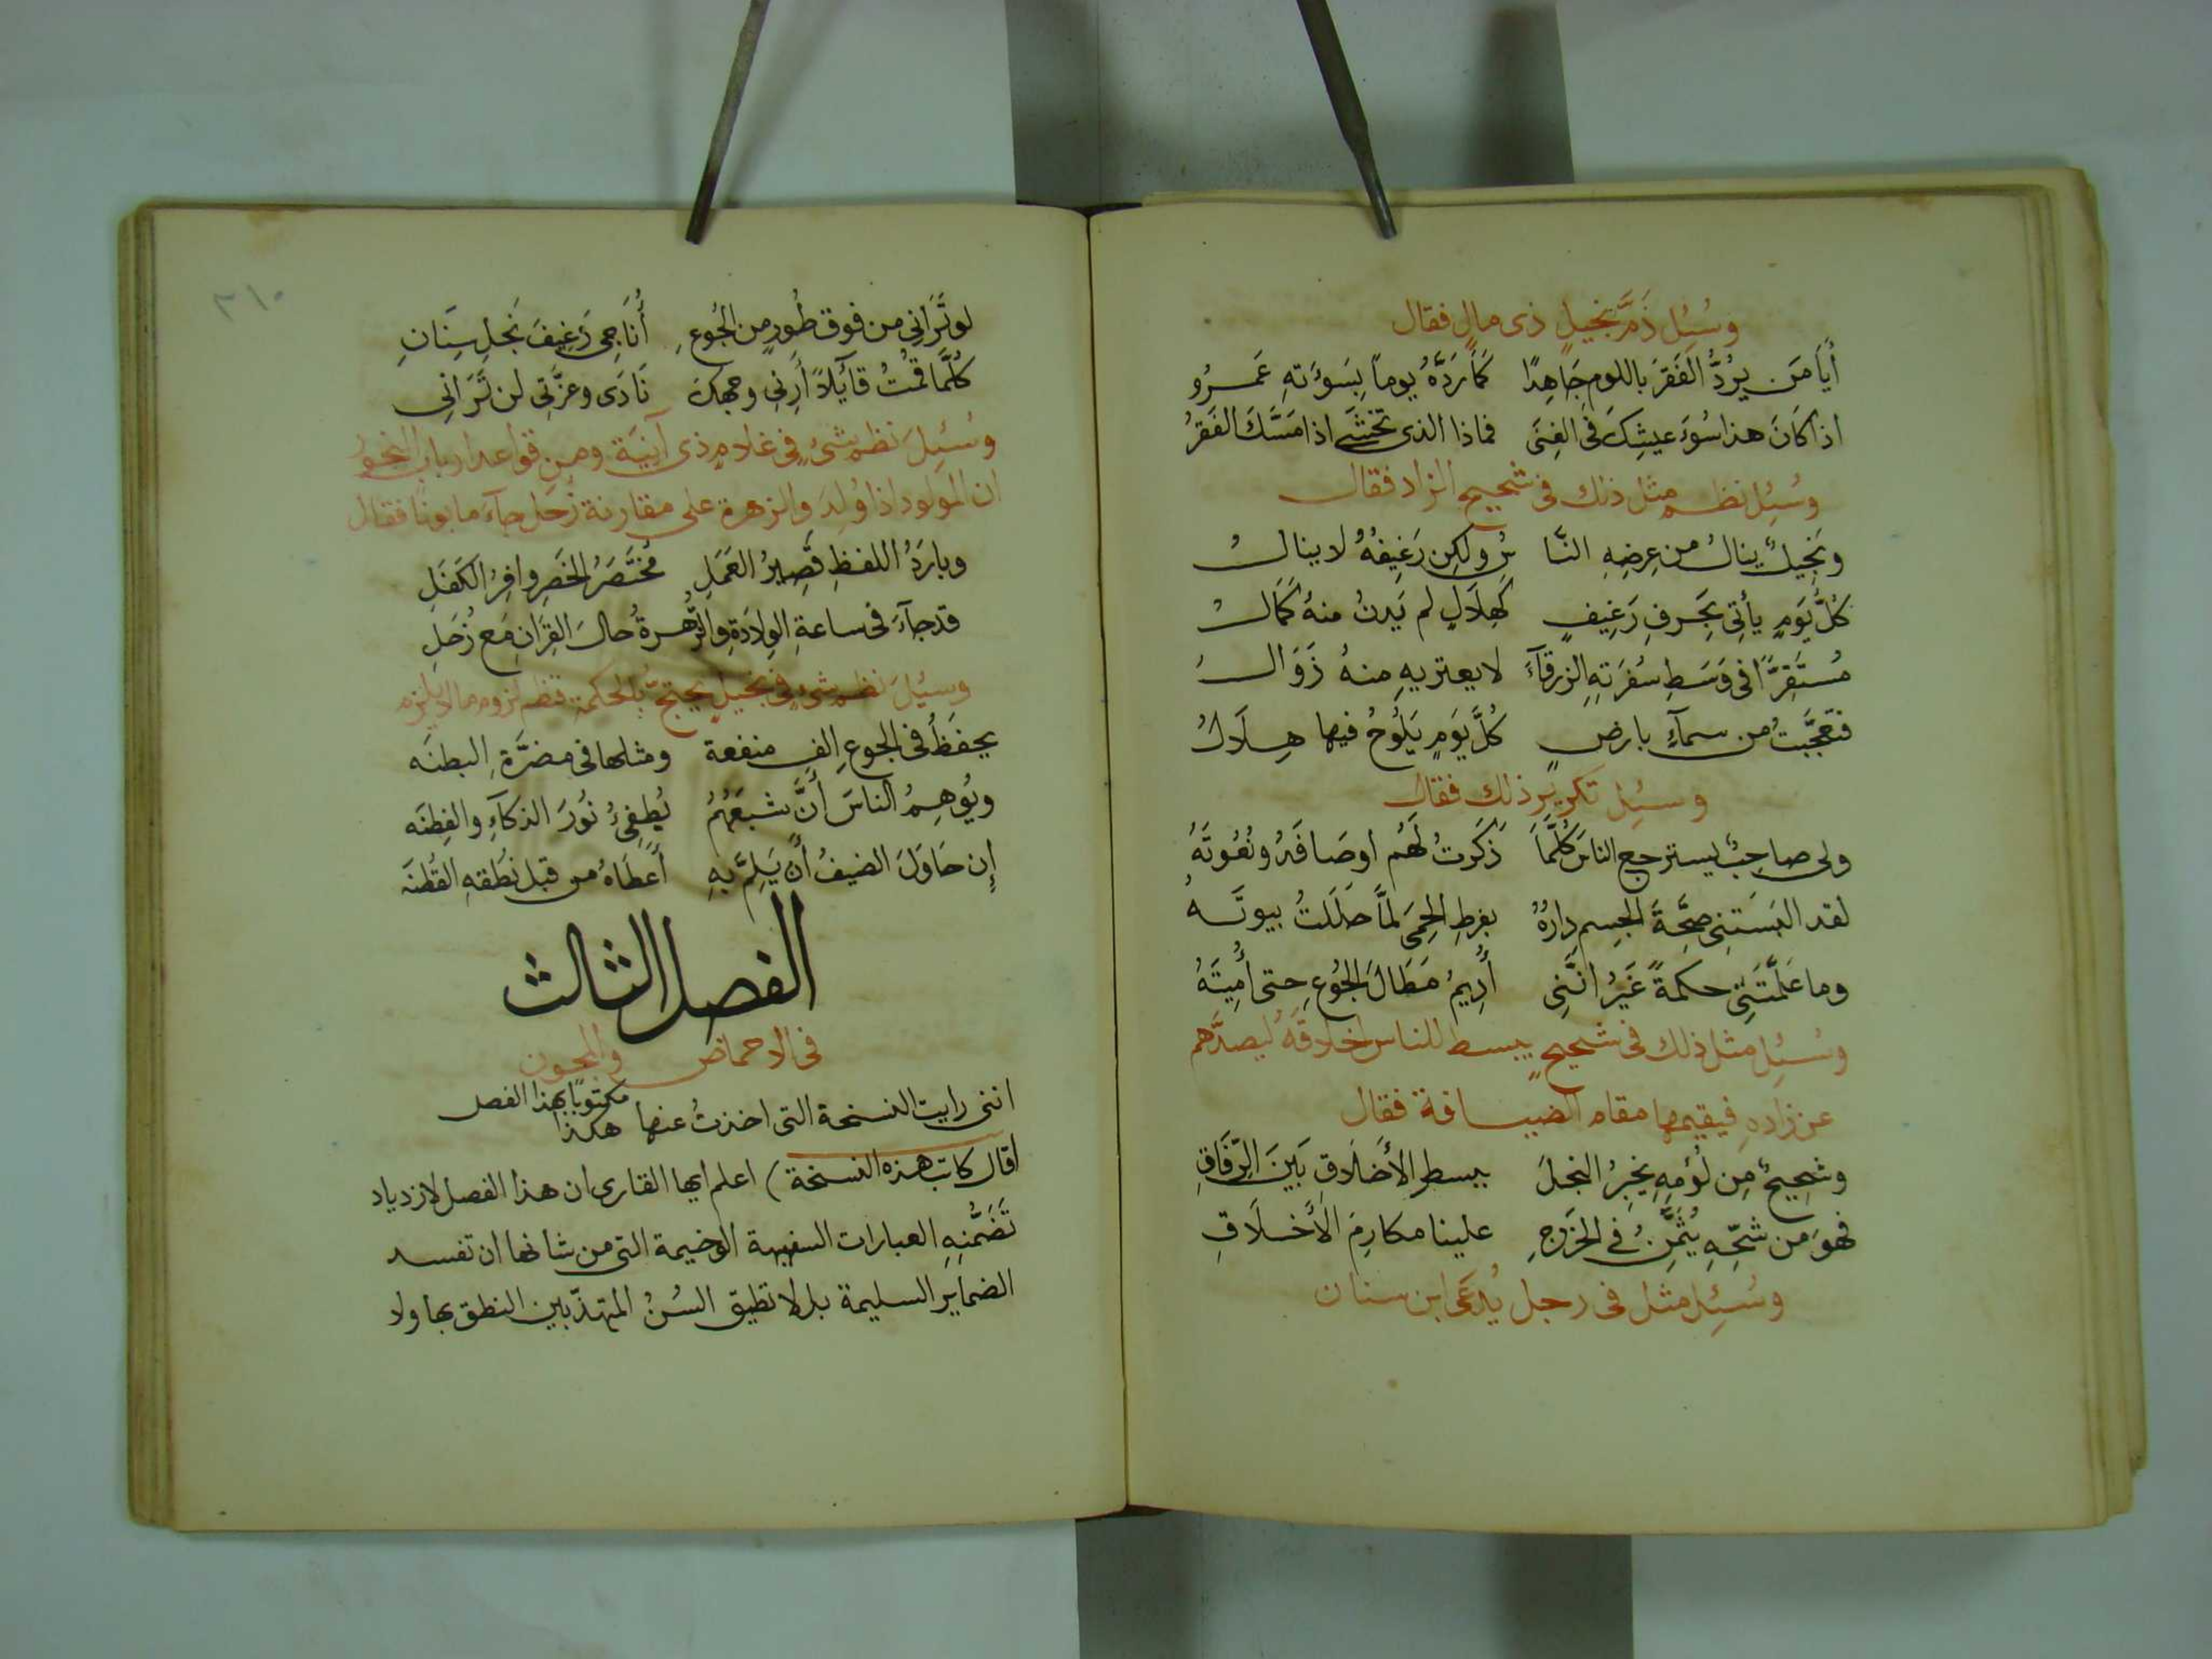 وسُئِل ذَمَّ بخيلٍ ذى مالٍ فقال
أيَا مَن يرُدُّ الفَقرَ باللوم جَاهِدًا كمَا رَدَّهُ يوماً بِسَوءَتهِ عَمرُو
اذا كَانَ هذا سُوءَ عيشِكَ فى الغِنَى فماذا الذى تخشَى اذا مَسَّكَ الفَقرُ
وسُئِل نظم مثل ذلك فى شحيح الزاد فقال
وبَخِيلٌ ينالُ من عِرضِهِ النَّا سُ ولكن رَغِيفهُ لا ينالُ
كُلَّ يَومٍ يأتى بِحَرفِ رَغِيفٍ كَهِلَالٍ لم يَدنُ منهُ كَمَالُ
مُستَقِرًّا فى وَسَطِ سُفرَتهِ الزرقآءَ لا يعتريهِ منهُ زَوَالُ
فتعجَّبتُ من سمآءٍ بارضٍ كُلَّ يَومٍ يَلُوحُ فيها هِلَالُ
وسئِل تكرير ذلك فقال
ولى صاحِبٌ يسترجع الناسُ كُلَّمَا ذَكَرتُ لَهُم اوصَافَهُ ونُعُوتَهُ
لقد البَسَتنى صِحَّةَ الجِسم دارُهُ بفرطِ الحِمَى لمَّا حَلَلتُ بيوتَه
وما عَلَّمَتَنِى حكمةً غَيرُ انَّنِى أُدِيمُ مَطَالَ الجُوعِ حتى أُمِيتَهُ
وسُئِل مثل ذلك فى شحيحٍ يبسط للناس اخلاقَهُ ليصدَّهم
عن زاده فيقيمها مقام الضيافة فقال
وشحِيحٌ مِن لُؤمِهِ يخبِرُ البخلَ ببسطِ الأخلَاقِ بَينَ الرِّفَاقِ
فهوَ من شحِّهِ يُثَمِّنُ فى الخَرجِ علينا مكارِمَ الأخلَاقِ
وسُئِل مثل فى رجل يُدعَى ابن سنان
٣١٠
لو تَرَانى من فوق طُورٍ من الجُوعِ أُنَاجِى رَغِيفَ نَجلِ سِنَانِ
كُلَّمَا قمتُ قآئِلاً أرِنى وجهكَ نَادَى وعزَّتى لن تَرَانى
وسُئِلَ نظم شىءٍ فى غلامٍ ذى آبنة ومن قواعد ارباب النجوم
ان المولود اذا وُلِدَ والزهرة على مقارنة زُحَل جآءَ مابونًا فقال
وبارَدُ اللفظِ قصِيرُ العَمَلِ مُختَصَرُ الخَصرِ وافِرُ الكَفَلِ
قد جآءَ فى ساعةِ الوِلادَةِ والزُّهرةُ حالَ القِرَانِ مَع زُحَلِ
وسئِلَ نظم شىءٍ فى بخيلٍ يحتجُّ بالحكمة فنظم لزوم ما لا يلزم
يحفَظُ فى الجوعِ الف منفعة ومثلها فى مضرَّةِ البطنَه
ويُوهِمُ الناسَ أنَّ شبَعَهُمُ يُطفِىءُ نُورَ الذكآءِ والفِطنَه
إن حَاوَلَ الضيفُ أن يَلِمَّ بهِ أعطَاهُ من قبل نُطقهِ القُطنَه
الفصل الثالث
فى الاحماض والمجون
اننى رايت النسخة التى اخذتُ عنها مكتوبًا بهذا الفصل هكذا
(قال كاتب هذه النسخة) اعلم ايها القارى ان هذا الفصل لازدياد
تَضَمُّنِهِ العبارات السفيهة الوخيمة التى من شانها ان تفسد
الضماير السليمة بل لا تطيق السُنُ المتهذّبين النطق بها ولا